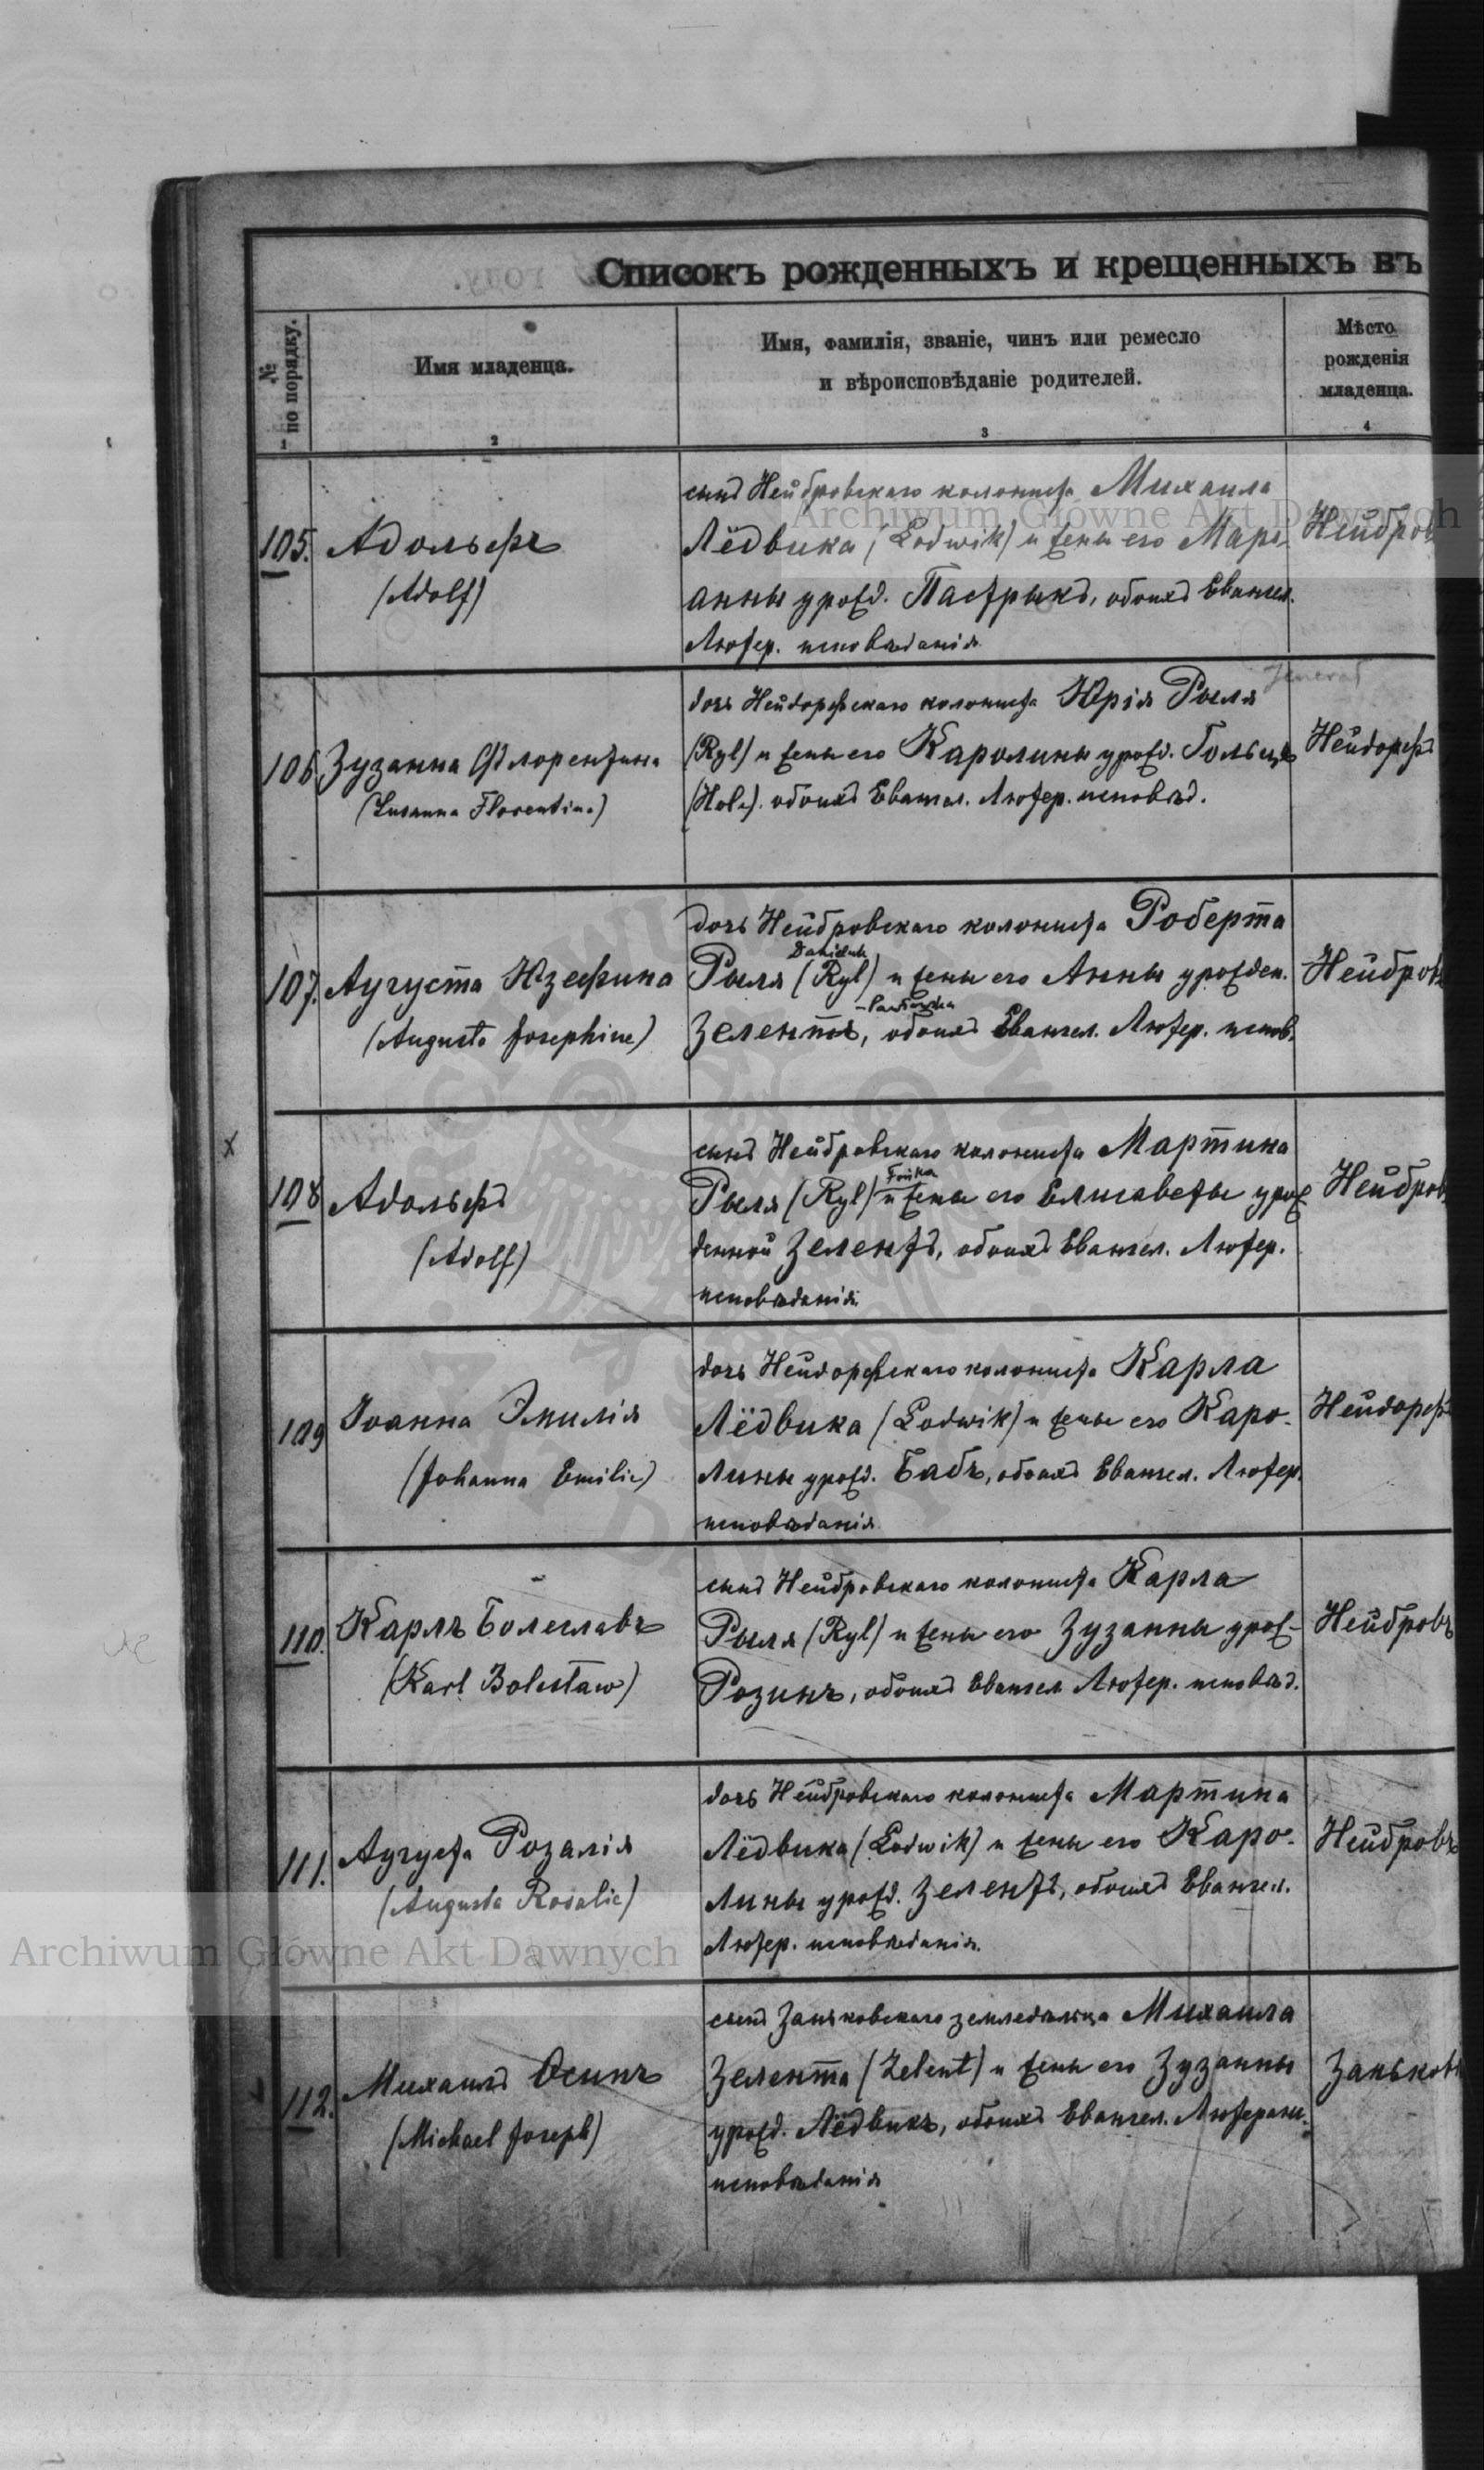 Списокъ рожденныхъ и крещенныхъ въ
№ по порядку.
Имя младенца.
Имя, фамилія, званіе, чинъ или ремесло
и вѣроисповѣданіе родителей.
Мѣсто
рожденія
младенца.
1
2
3
4
105.
Адольфъ
(Adolf)
сынъ Нейбровскаго колониста Михаила
Лёдвика (Lodwik) и жены его Мари-
анны урожд. Пастрыкъ, обоихъ Евангел.
Лютер. исповѣданія
Нейбров
106
Зузанна Флорентина
(Susanna Florentina)
дочь Нейдорфскаго колониста Юрія Рыля
(Ryl) и жены его Каролины урожд. Гольцъ
(Holc). обоихъ Евангел. Лютер. исповѣд.
Нейдорфъ
107.
Аугуста Юзефина
(Augusta Josephine)
дочь Нейбровскаго колониста Роберта
Рыля (Ryl) и жены его Анны урожден.
Зелентъ, обоихъ Евангел. Лютер. испов.
Нейбровъ
108
Адольфъ
(Adolf)
сынъ Нейбровскаго колониста Мартина
Рыля (Ryl) и жены его Елисаветы урож
денной Зелентъ, обоихъ Евангел. Лютер.
исповѣданія.
Нейбров
109
Іоанна Эмилія
(Johanna Emilie)
дочь Нейдорфскаго колониста Карла
Лёдвика (Lodwik) и жены его Каро-
лины урожд. Бабъ, обоихъ Евангел. Лютер.
исповѣданія
Нейдорфъ
110.
Карлъ Болеславъ
(Karl Bolesław)
сынъ Нейбровскаго колониста Карла
Рыля (Ryl) и жены его Зузанны урож-
Розинъ, обоихъ Евангел Лютер. исповѣд.
Нейбровъ
111.
Аугуста Розалія
(Augusta Rosalie)
дочь Нейбровскаго колониста Мартина
Лёдвика (Lodwik) и жены его Каро-
лины урожд. Зелентъ, обоихъ Евангел.
Лютер. исповѣданія.
Нейбровъ
112.
Михаилъ Осипъ
(Michael Joseph)
сынъ Заньковскаго земледѣльца Михаила
Зелента (Zelent) и жены его Зузанны
урожд. Лёдвикъ, обоихъ Евангел. Лютеран.
исповѣданія
Заньковъ
Archiwum Główne Akt Dawnych
Archiwum Główne Akt Dawnych